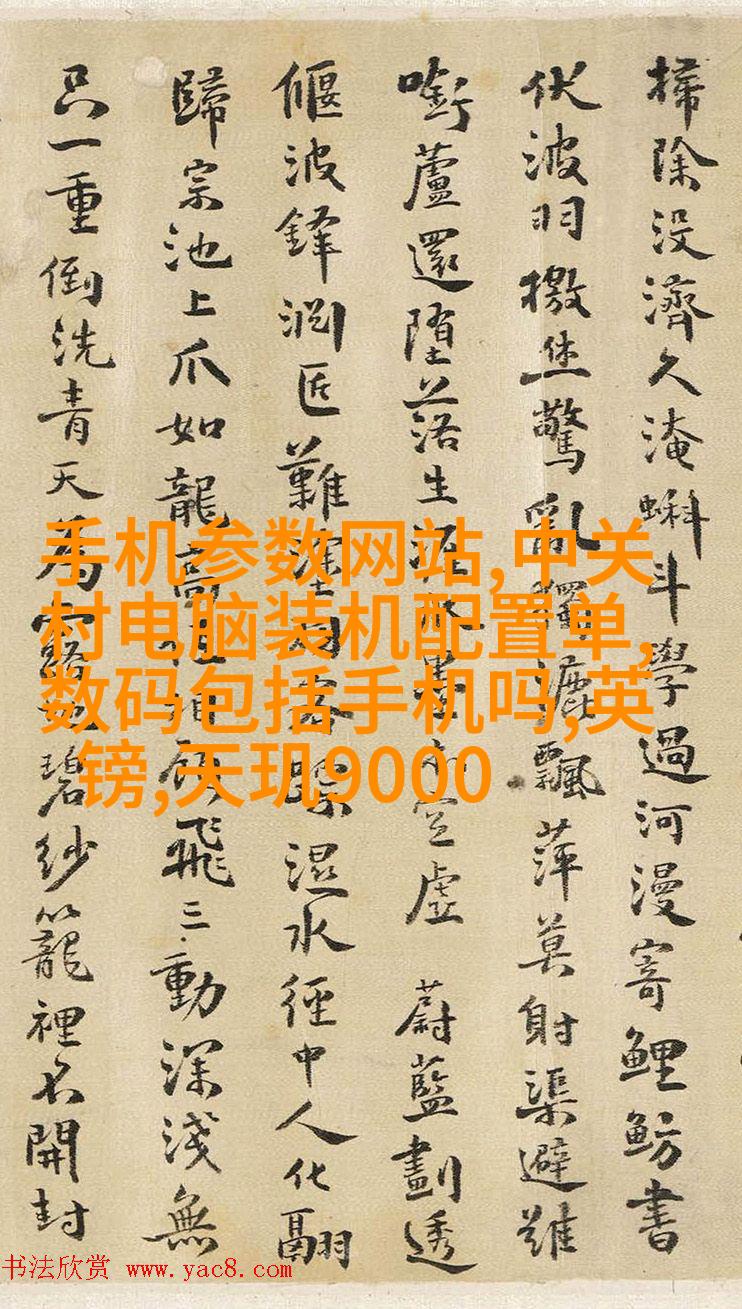 掃除没濟久淹蝌斗學過河漫寄鯉魴書
伏波羽檄焦驚亂獨漉飄萍莫射渠避雖
啣蘆還墮落生涯水墨空虛 蔚藍劃透
偃波鋒澗匠難踪濕水徑中人化翮
歸宗池上爪如龍飛三動深淺無
只一重倒洗青天為碧紗籠裡不開封
手机参数网站,中关
村电脑装机配置单,
数码包括手机吗,英
镑,天玑9000
书法欣赏 www.yac8.com